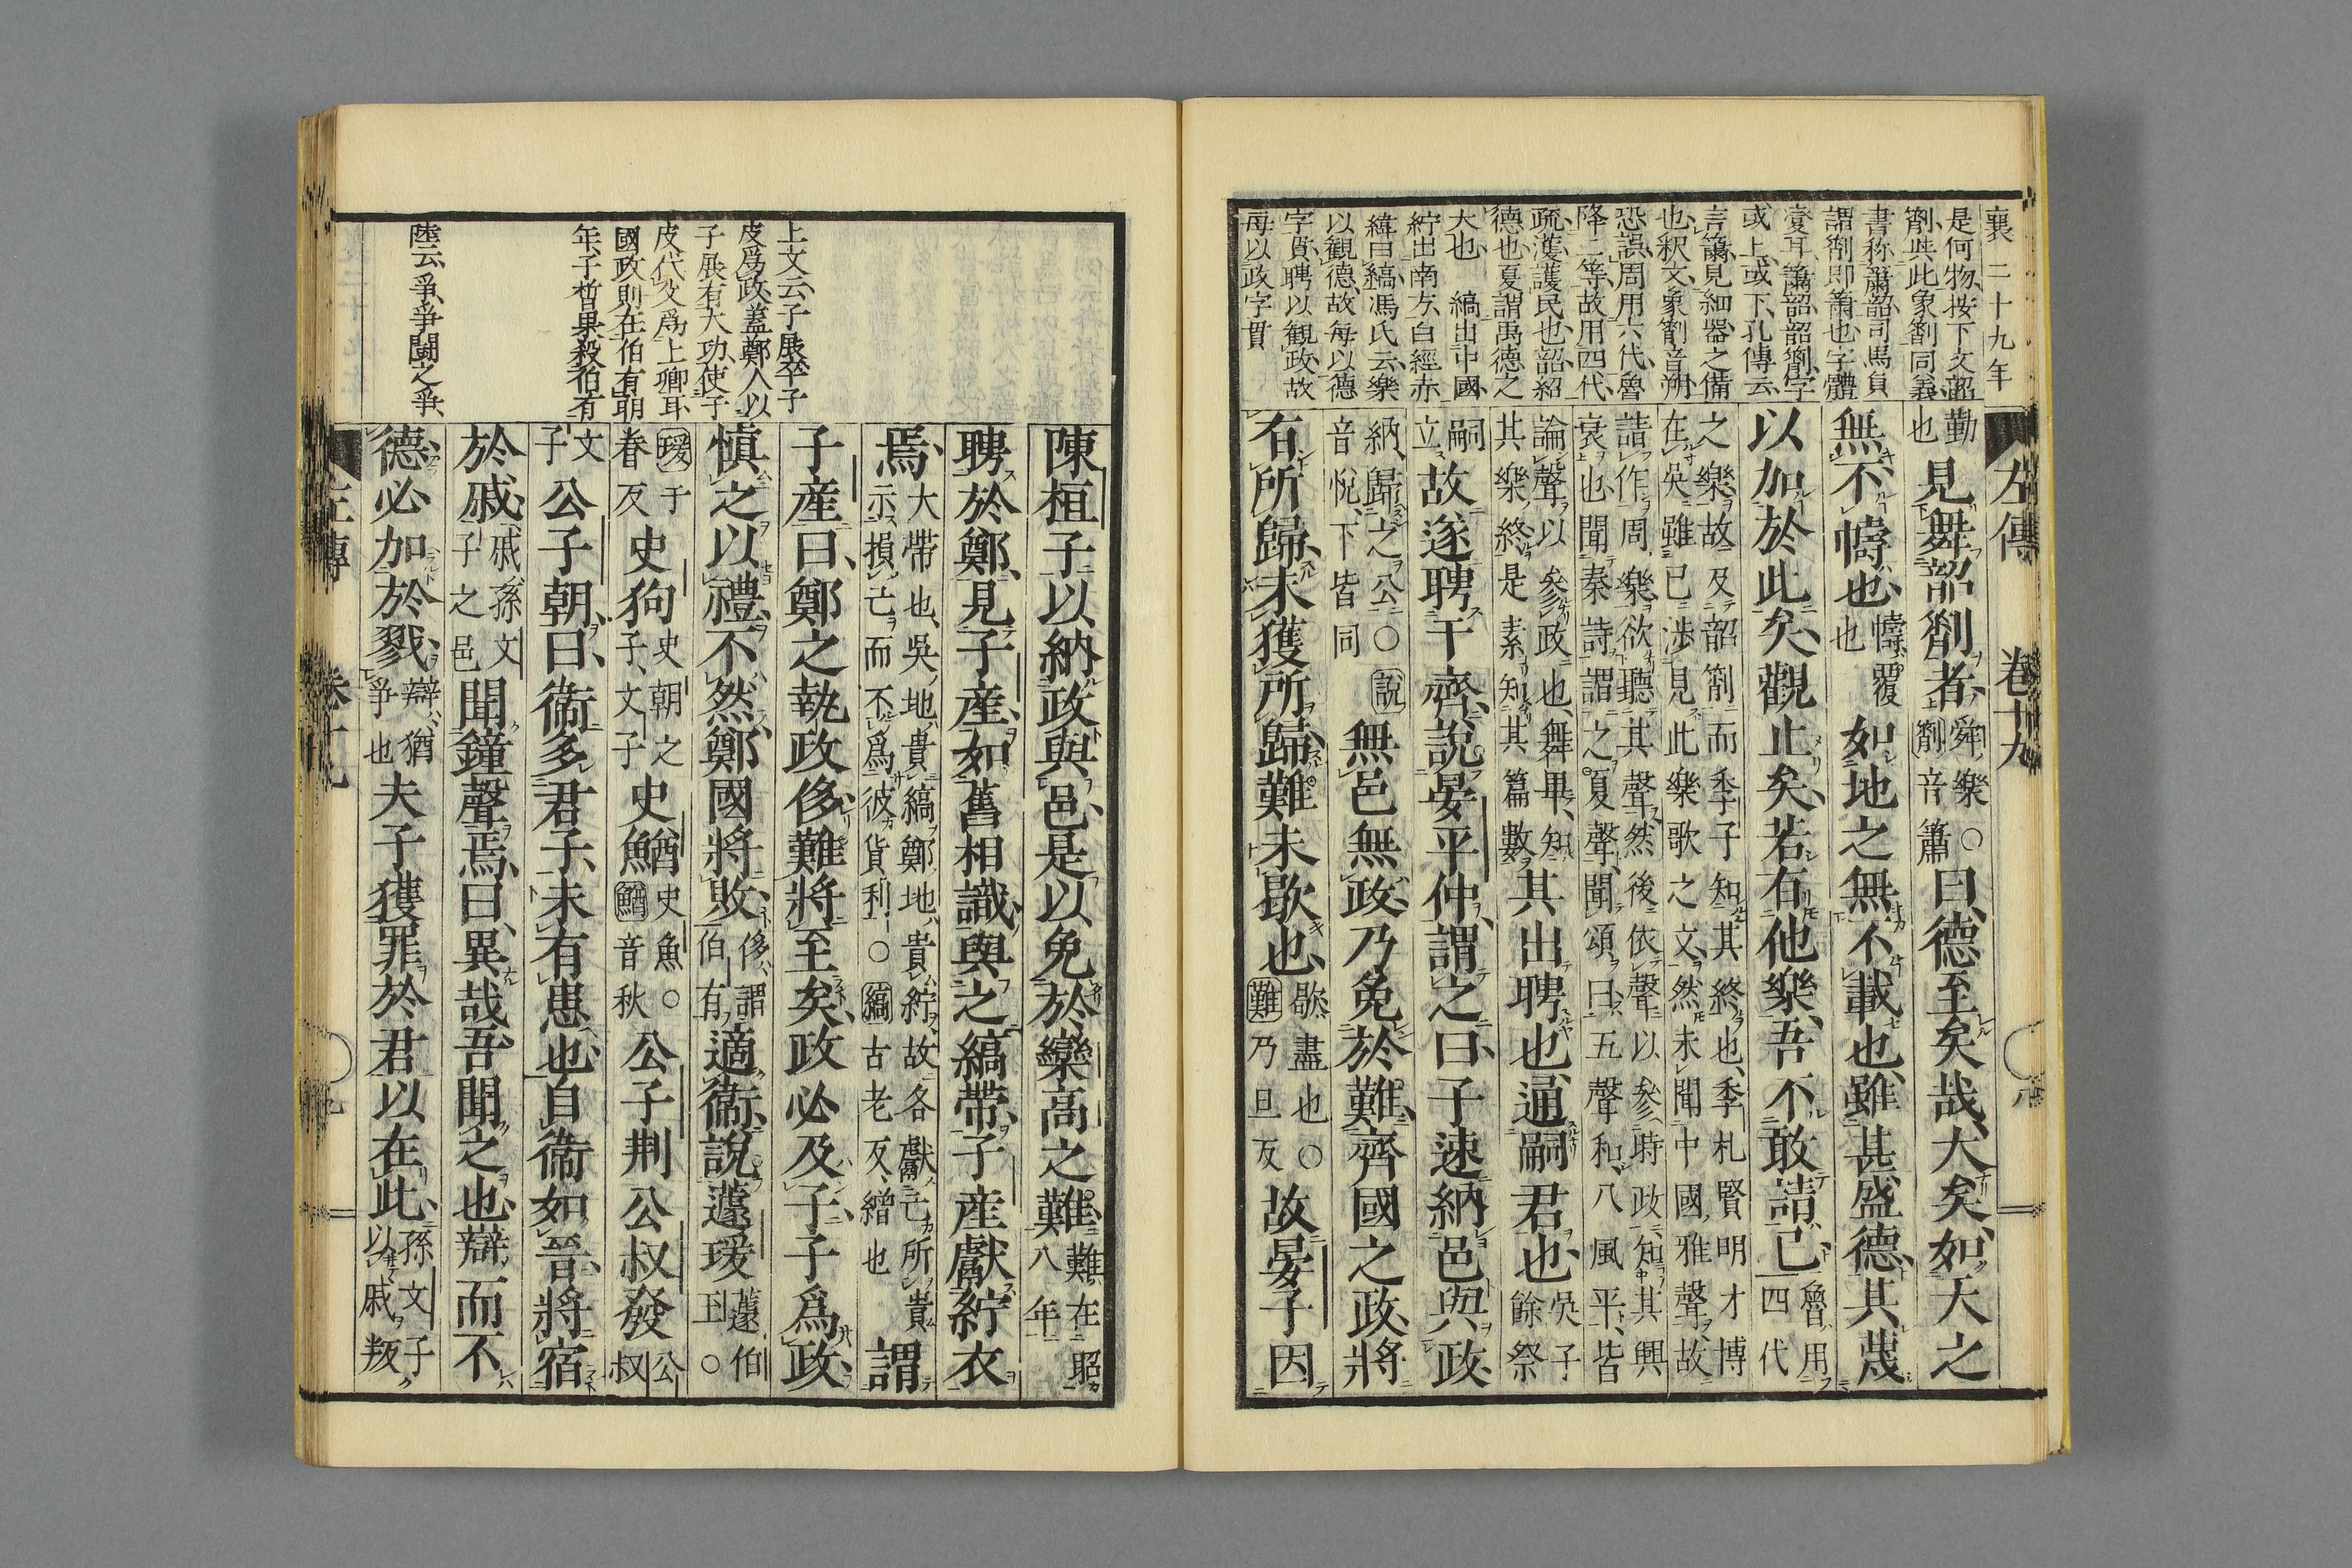 襄二十九年
是何物、按下文韶
箾與此象箾同義、
書称簫韶、司馬貞
謂箾即簫也、字體
變耳、簫韶韶箾字
或上或下、孔傳云
言簫見細器之備
也、釈文、象箾音朔
恐誤、周用六代、魯
降二等、故用四代、
疏、濩護民也、韶紹
德也、夏謂禹德之
大也　縞出中國、
紵出南方、白經赤
緯曰縞、馮氏云、樂
以観德、故每以德
字貫、聘以観政、故
每以政字貫
左傳　卷十九
勤
也
見舞韶箾者、
舜樂○
箾音簫
曰、德至矣哉、大矣、如天之
無不幬也、
幬、覆
也
如地之無不載也、雖甚盛德、其蔑
以加於此矣、觀止矣、若有他樂、吾不敢請已、
魯用
四代
之樂、故及韶箾而季子知其終也、季札賢明才博
在吳雖已涉見此樂歌之文、然未聞中國雅聲、故
請作周樂、欲聽其聲、然後依聲以參時政、知其興
衰也、聞秦詩謂之夏聲、聞頌曰五聲和、八風平、皆
論聲以參政也、舞畢、知
其樂終、是素知其篇數
其出聘也、通嗣君也、
吳子
餘祭
嗣
立
故遂聘于齊、說晏平仲、謂之曰、子速納邑與政、
納、歸之公○說
音悅、下皆同
無邑無政、乃免於難、齊國之政、將
有所歸、未獲所歸、難未歇也、
歇、盡也○
難乃旦反
故晏子因
陳桓子以納政與邑、是以免於欒高之難、
難在昭
八年
聘於鄭、見子產、如舊相識、與之縞帶、子產獻紵衣
焉、
大帶也、吳地貴縞、鄭地貴紵、故各獻己所貴
示損己而不爲彼貨利○縞古老反、繒也
謂
子產曰、鄭之執政侈、難將至矣、政必及子、子爲政、
慎之以禮、不然、鄭國將敗、
侈、謂
伯有
適衞、說蘧瑗
蘧伯
玉○
瑗于
眷反
史狗
史朝之
子、文子
史鰌
史魚○
鰌音秋
公子荆、公叔發
公
叔
文
子
公子朝、曰、衞多君子、未有患也、自衞如晉、將宿
於戚、
戚、孫文
子之邑
聞鐘聲焉、曰、異哉、吾聞之也、辯而不
德、必加於戮、
辯、猶
爭也
夫子獲罪於君以在此、
孫文子
以戚叛
上文云、子展卒、子
皮爲政、蓋鄭人以
子展有大功、使子
皮代父爲上卿耳、
國政則在伯有、明
年、子晳果殺伯有
陸云、爭、爭鬪之爭、
左傳　卷十九